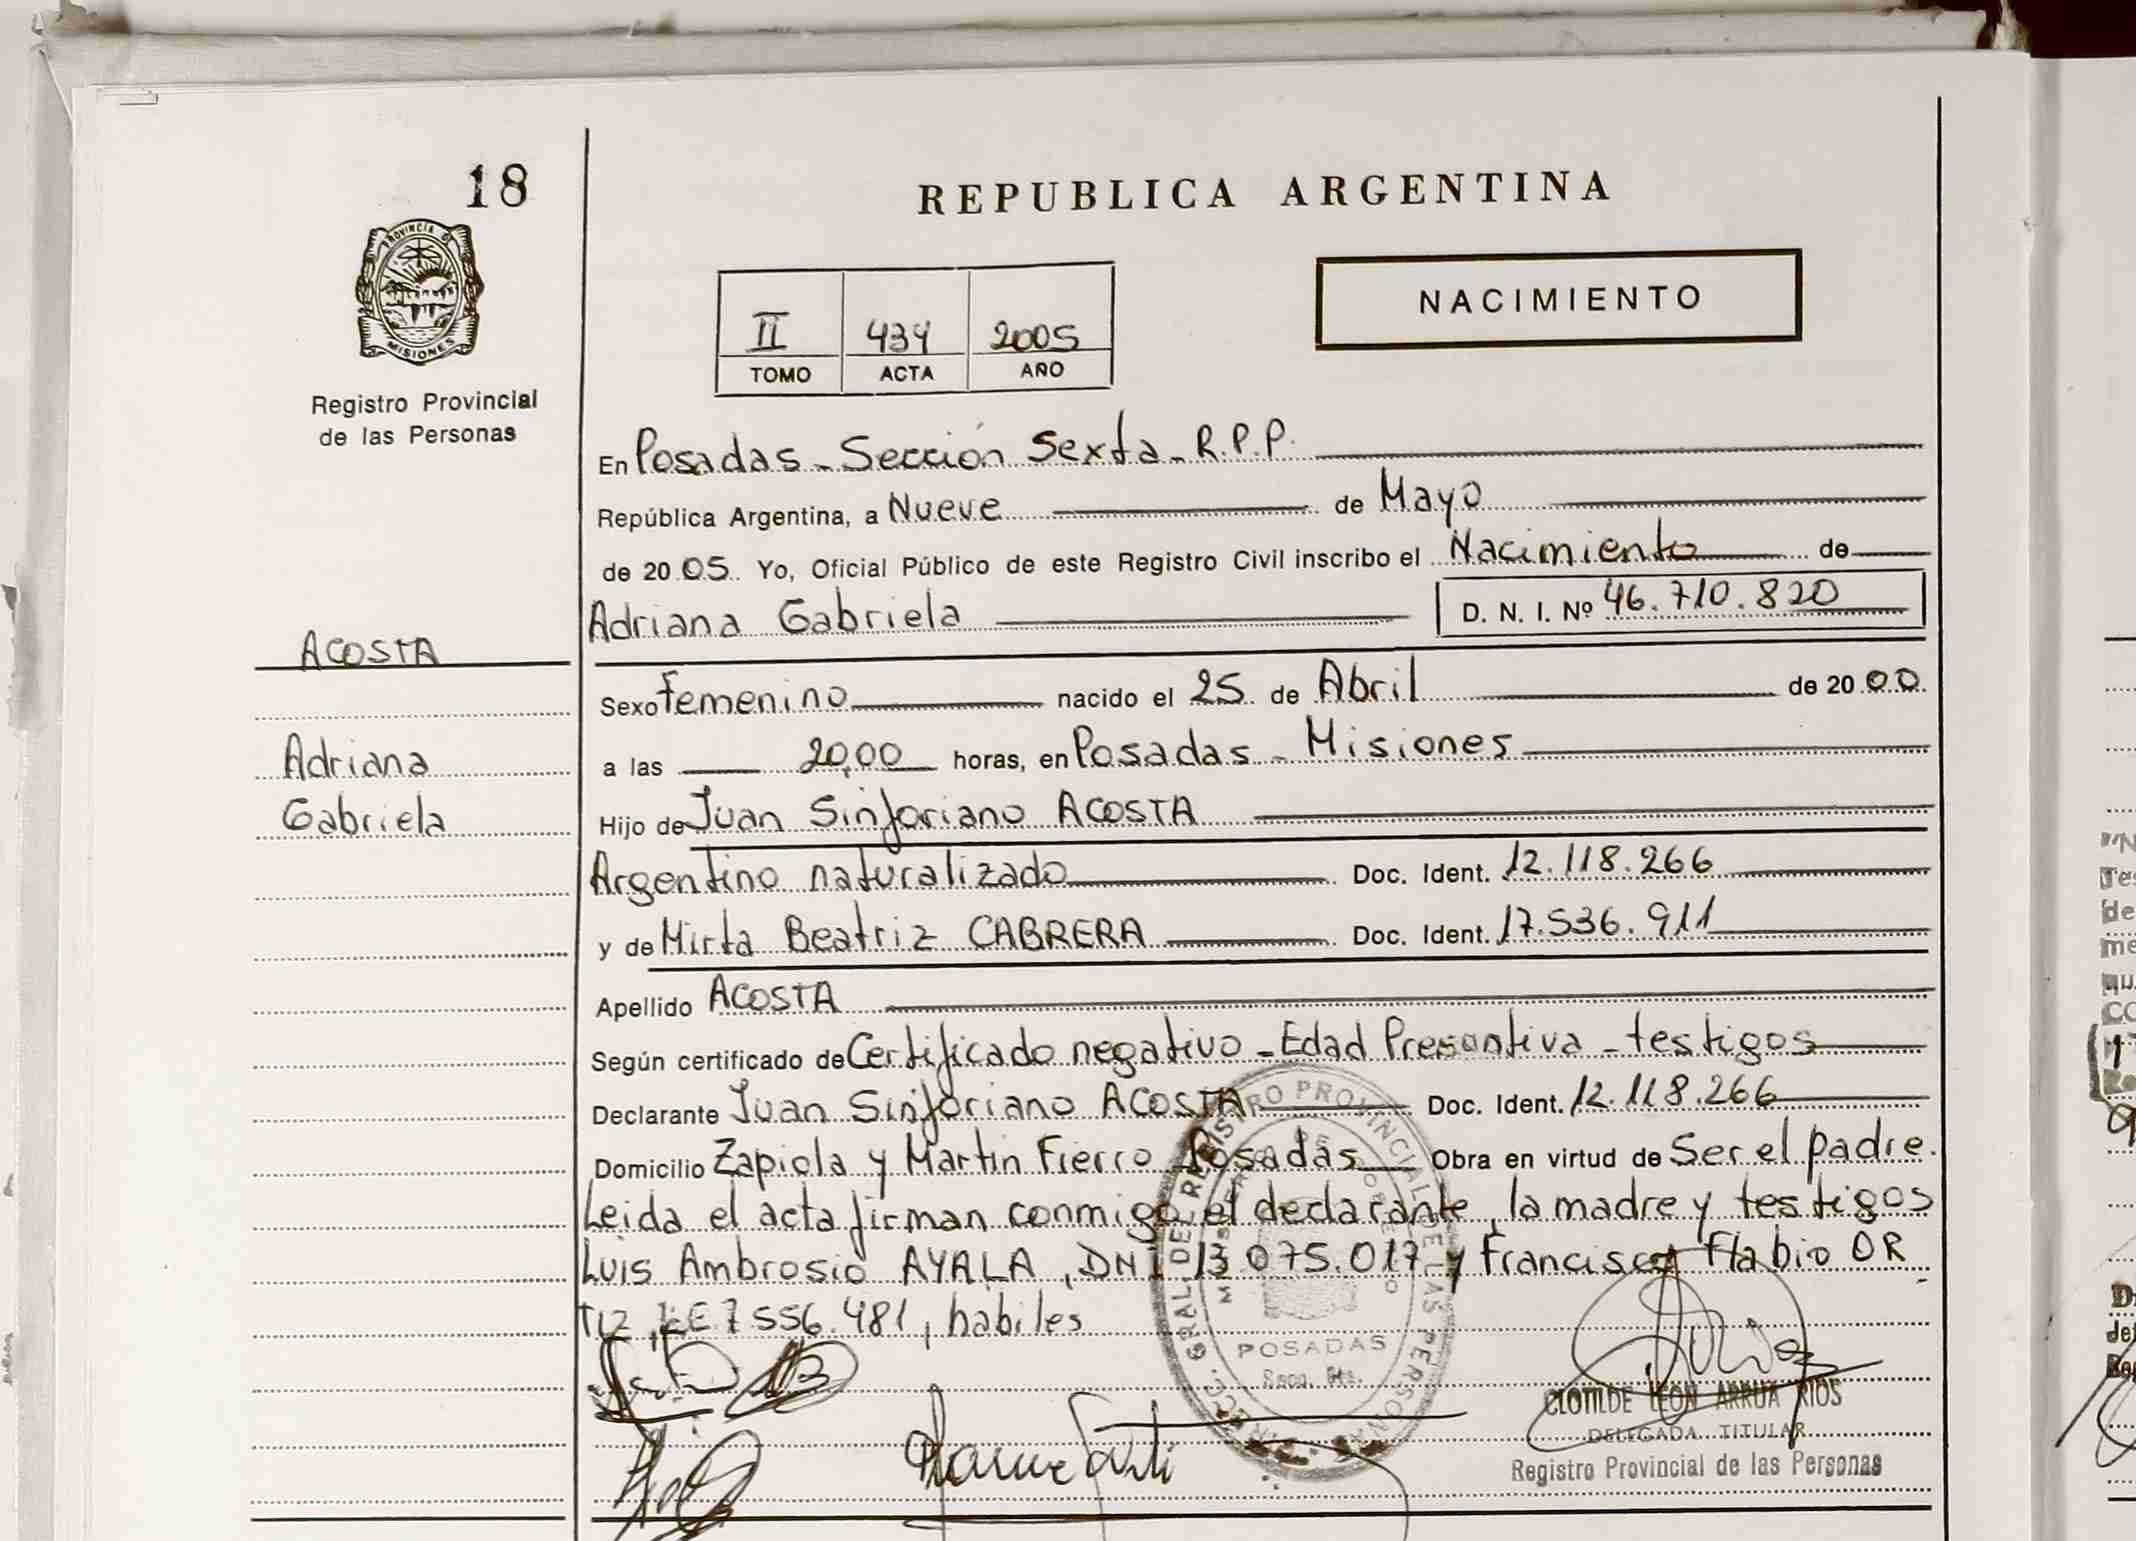 18
REPUBLICA ARGENTINA
PROVINCIA DE
MISIONES
NACIMIENTO
II 434 2005
TOMO ACTA AÑO
Registro Provincial
de las Personas
En Posadas - Sección Sexta - R.P.P.
República Argentina, a Nueve de Mayo
de 2005. Yo, Oficial Público de este Registro Civil inscribo el Nacimiento de
Adriana Gabriela D. N. I. Nº 46.710.820
ACOSTA
Sexo Femenino nacido el 25 de Abril de 2000
Adriana
a las 20,00 horas, en Posadas - Misiones
Gabriela
Hijo de Juan Sinforiano ACOSTA
Argentino naturalizado Doc. Ident. 12.118.266
y de Mirta Beatriz CABRERA Doc. Ident. 17.536.911
Apellido ACOSTA
Según certificado de Certificado negativo - Edad Presontiva - testigos
Declarante Juan Sinforiano ACOSTA Doc. Ident. 12.118.266
Domicilio Zapiola y Martin Fierro Posadas Obra en virtud de Ser el padre.
Leida el acta firman conmigo el declarante, la madre y testigos
Luis Ambrosio AYALA, DNI 13 075.017 y Francisco Flabio OR
TIZ, LE 7 556.481, habiles
GRAL. DE REGISTRO PROVINCIAL DE LAS PERSONAS
POSADAS
CLOTILDE LEON ARRUA RIOS
DELEGADA TITULAR
Registro Provincial de las Personas